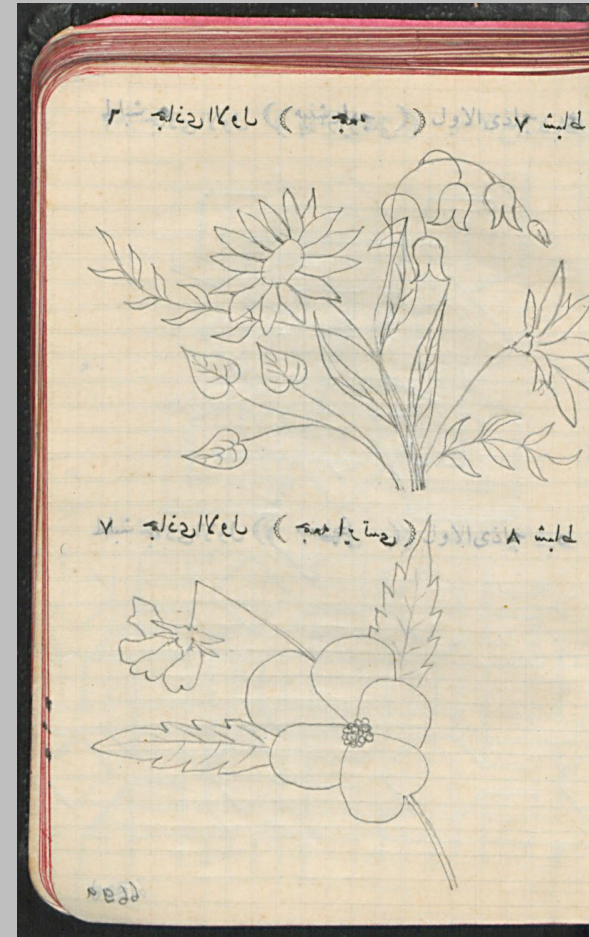 ٦ جماذى الاول (جمعه) ٧ شباط
٧ جماذى الاول (جمعه ايرتسى) ٨ شباط